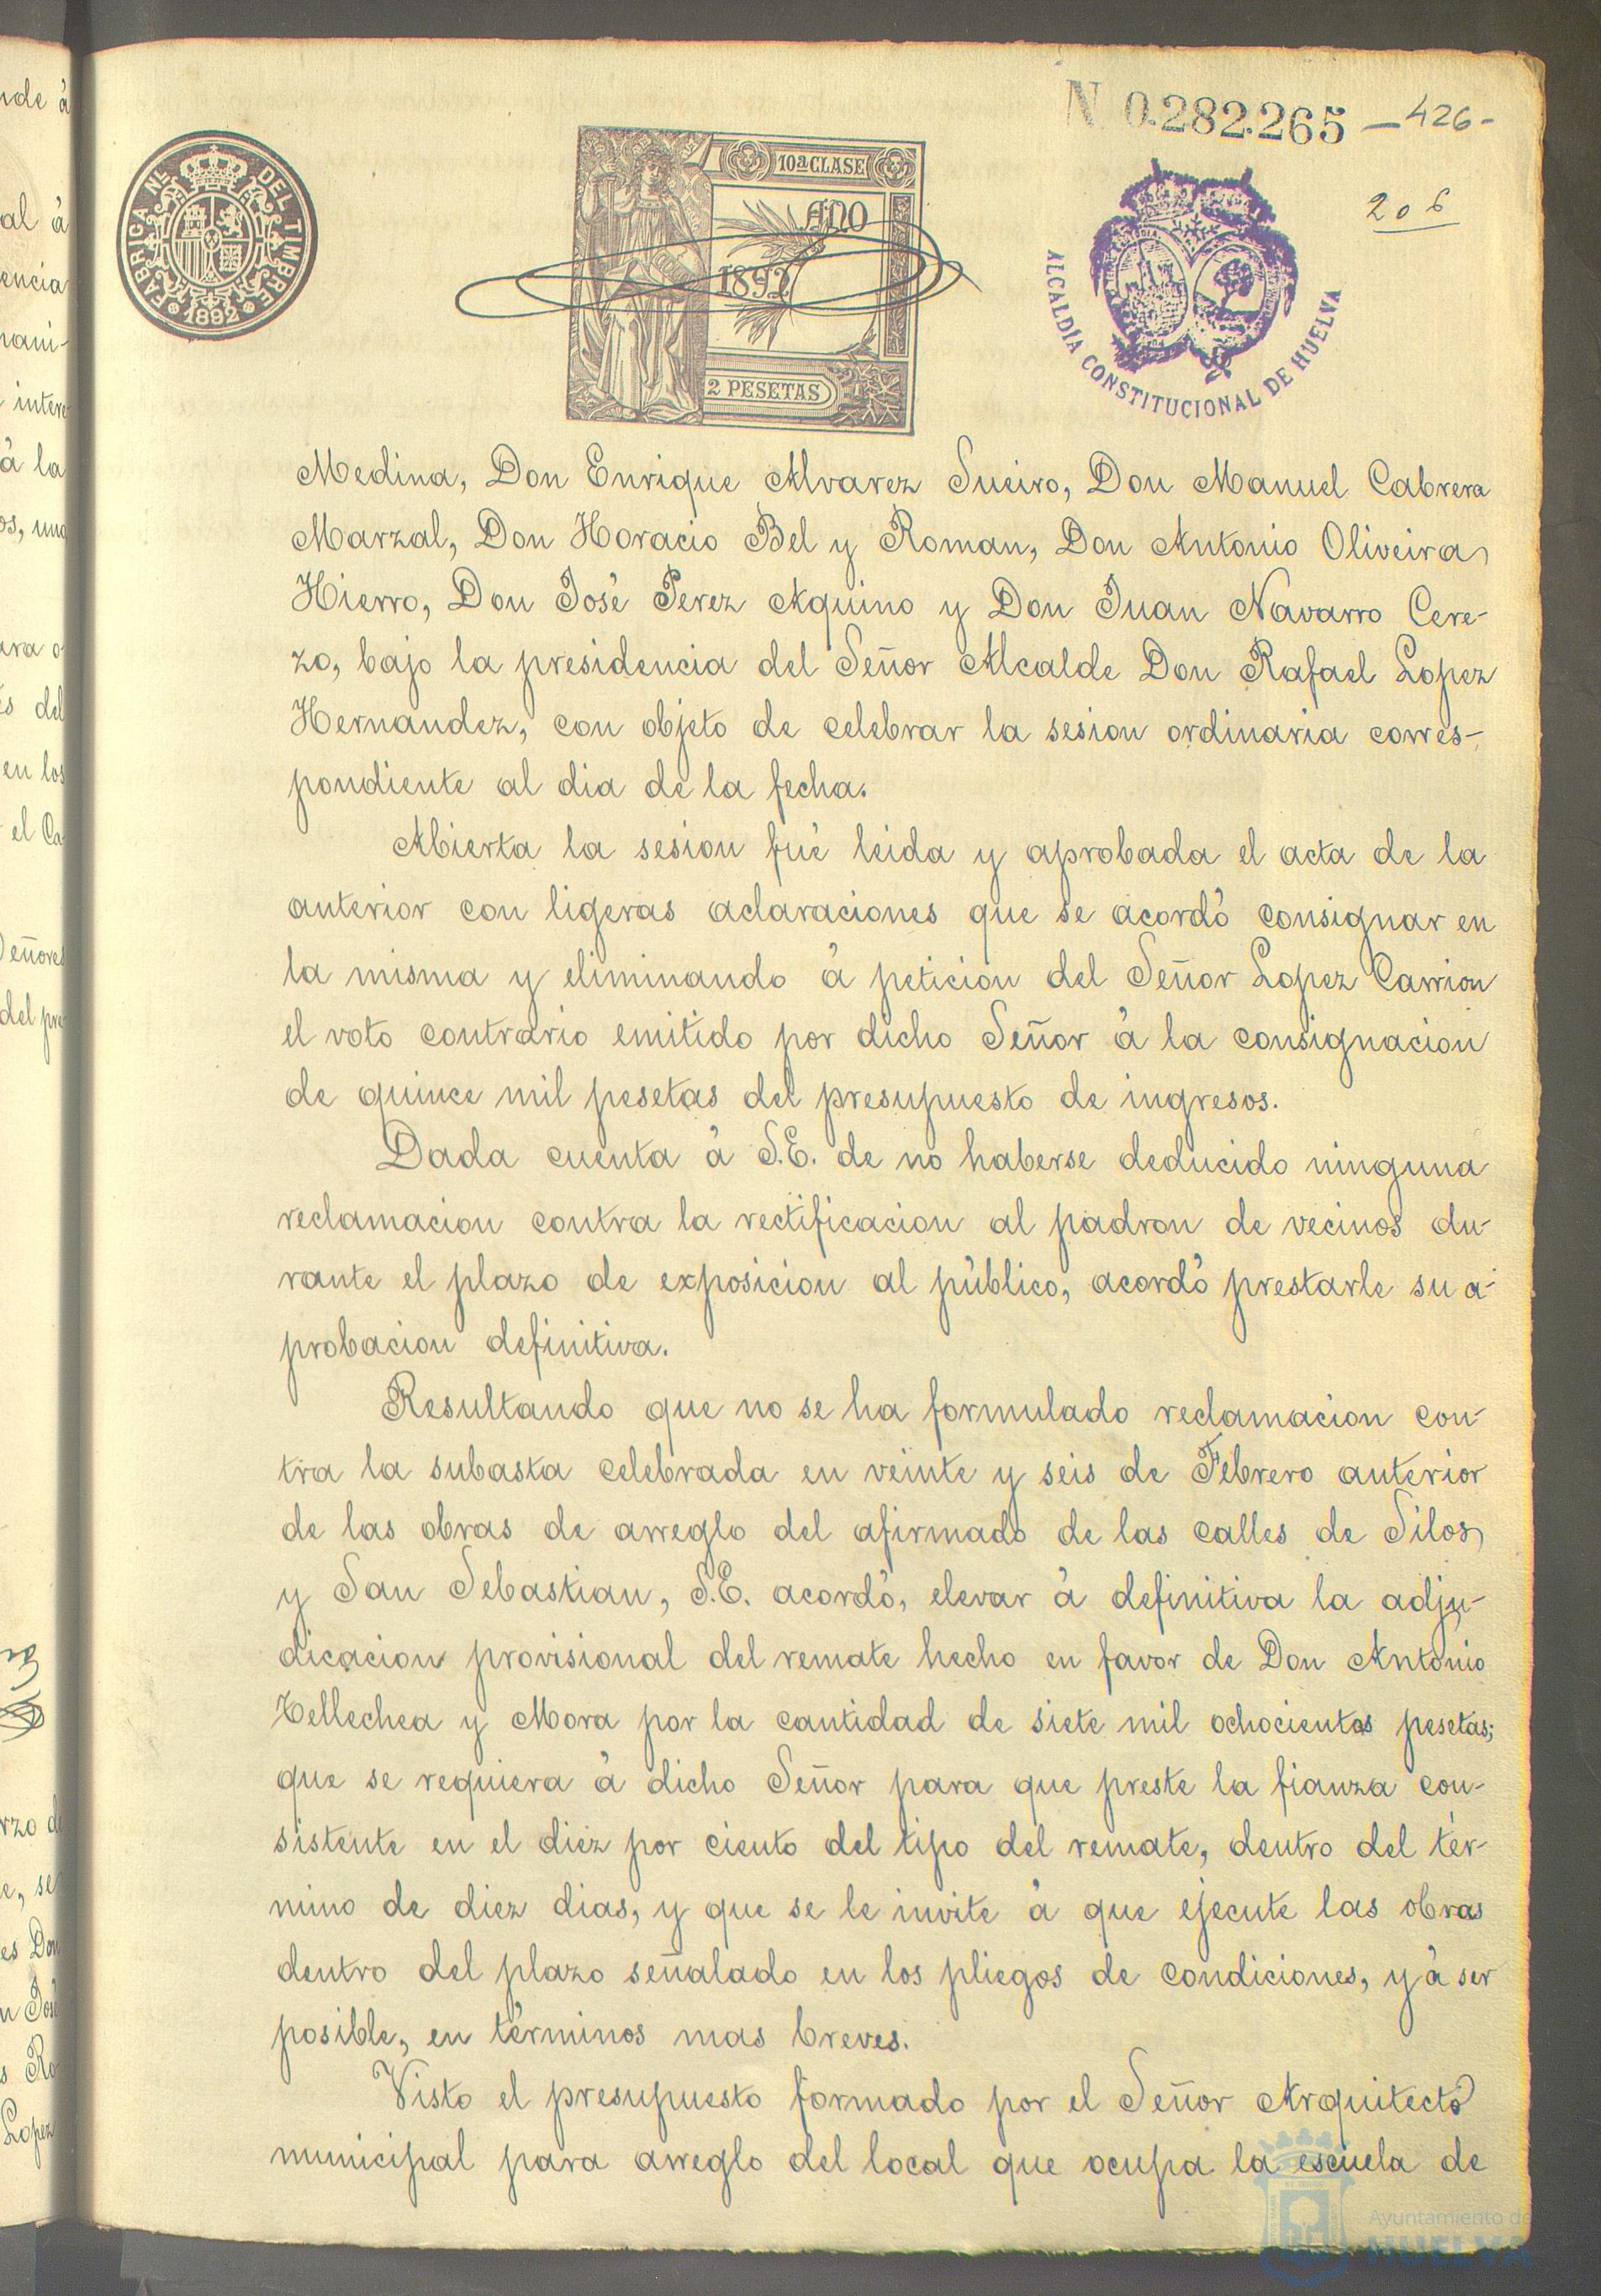 N. 0.282.265 - 426 -
206
FABRICA NL DEL TIMBRE
1892
10ª CLASE
AÑO
1892
2 PESETAS
ALCALDÍA CONSTITUCIONAL DE HUELVA
Medina, Don Enrique Alvarez Sueiro, Don Manuel Cabrera
Marzal, Don Horacio Bel y Roman, Don Antonio Oliveira
Hierro, Don José Perez Aquino y Don Juan Navarro Cere-
zo, bajo la presidencia del Señor Alcalde Don Rafael Lopez
Hernandez, con objeto de celebrar la sesion ordinaria corres-
pondiente al dia de la fecha.
Abierta la sesion fué leida y aprobada el acta de la
anterior con ligeras aclaraciones que se acordó consignar en
la misma y eliminando á peticion del Señor Lopez Carrion
el voto contrario emitido por dicho Señor á la consignacion
de quince mil pesetas del presupuesto de ingresos.
Dada cuenta á S.E. de no haberse deducido ninguna
reclamacion contra la rectificacion al padron de vecinos du-
rante el plazo de exposicion al público, acordó prestarle su a-
probacion definitiva.
Resultando que no se ha formulado reclamacion con-
tra la subasta celebrada en veinte y seis de Febrero anterior
de las obras de arreglo del afirmado de las calles de Silos
y San Sebastian, S.E. acordó, elevar á definitiva la adju-
dicacion provisional del remate hecho en favor de Don Antonio
Tellechea y Mora por la cantidad de siete mil ochocientas pesetas;
que se requiera á dicho Señor para que preste la fianza con-
sistente en el diez por ciento del tipo del remate, dentro del tér-
mino de diez dias, y que se le invite á que ejecute las obras
dentro del plazo señalado en los pliegos de condiciones, y á ser
posible, en términos mas breves.
Visto el presupuesto formado por el Señor Arquitecto
municipal para arreglo del local que ocupa la escuela de
Ayuntamiento de
HUELVA